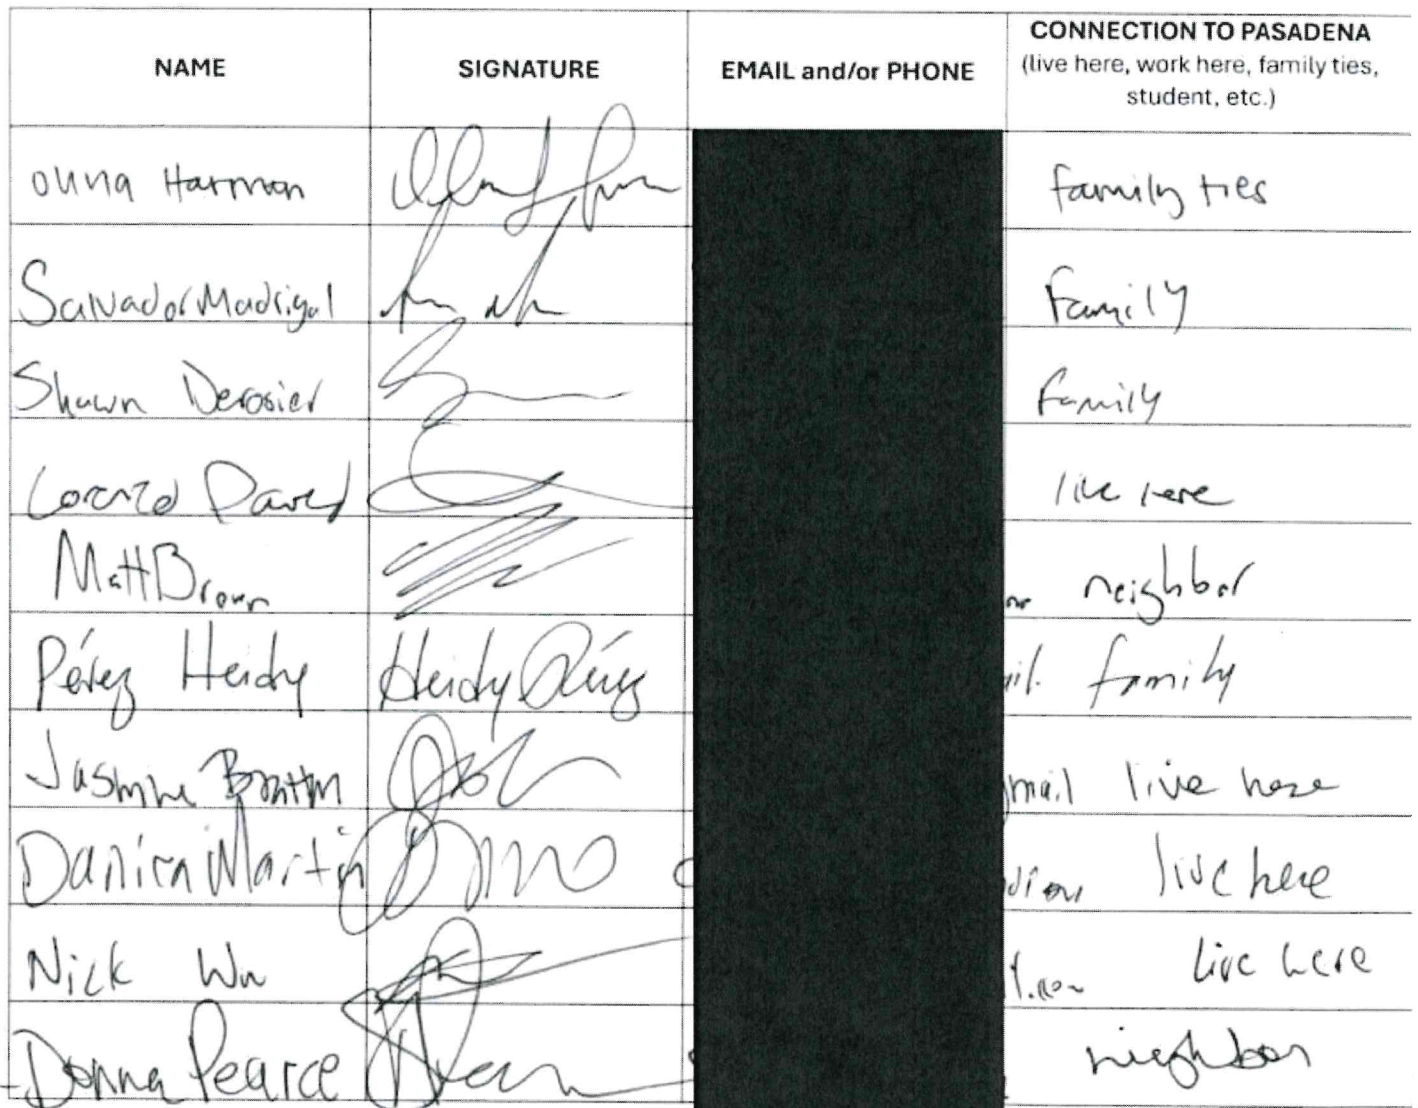 NAME SIGNATURE EMAIL and/or PHONE CONNECTION TO PASADENA
(live here, work here, family ties,
student, etc.)
Harmon family ties
Salvador Madrigal Family
Shawn Derosier family
David live here
Matt Brown neighbor
Pérez Heidy Heidy Pérez il. family
Jasmine mail live here
Danica Martin live here
Nick Wu live here
Donna Pearce neighbor